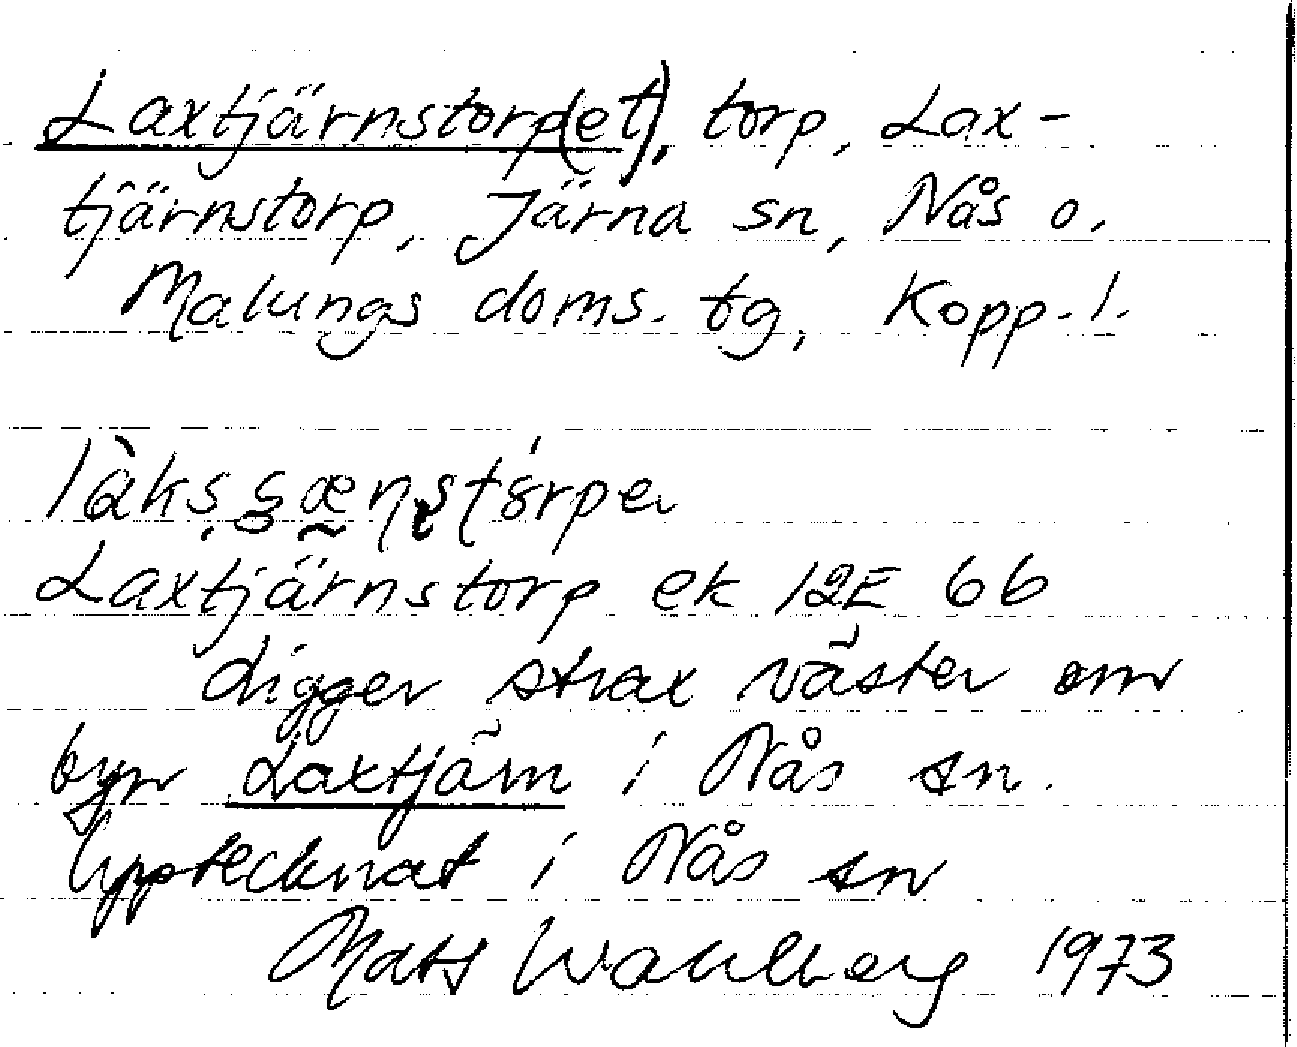 Laxtjärnstorp(et), torp, Lax-
tjärnstorp, Järna sn, Nås o.
Malungs doms. tg, Kopp. l.
Laxtjärnstorp ek 12E 6b
Ligger strax väster om
byn Laxtjärn i Nås sn.
Upptecknat i Nås sn
Mats Wahlberg 1973